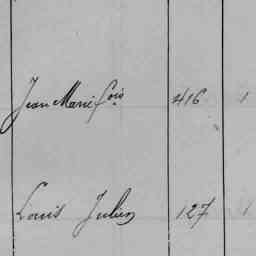 Jean Marie fois 416 1
Louis Julien 127 1